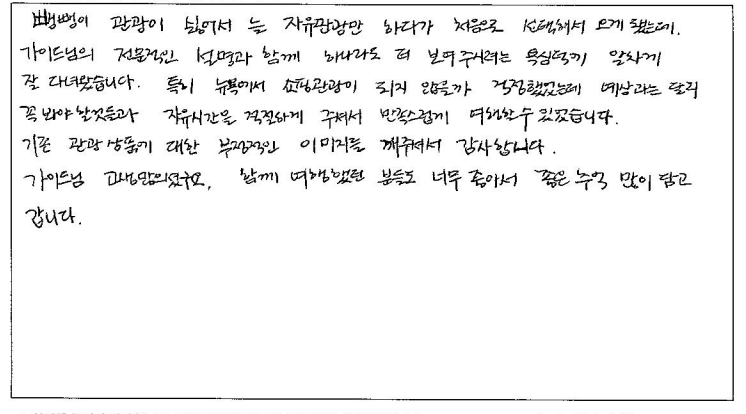 뺑뺑이 관광이 싫어서 늘 자유관광만 하다가 처음으로 선택해서 오게 됐는데.
가이드님의 전문적인 설명과 함께 하나라도 더 보여주시려는 욕심덕에 알차게
잘 다녀왔습니다. 특히 뉴욕에서 쇼핑관광이 되지 않을까 걱정했었는데 예상과는 달리
꼭 봐야할것들과 자유시간을 적절하게 주셔서 만족스럽게 여행할수 있었습니다.
기존 관광상품에 대한 부정적인 이미지를 깨주셔서 감사합니다.
가이드님 고생많으셨구요, 함께 여행했던 분들도 너무 좋아서 좋은 추억 많이 담고
갑니다.